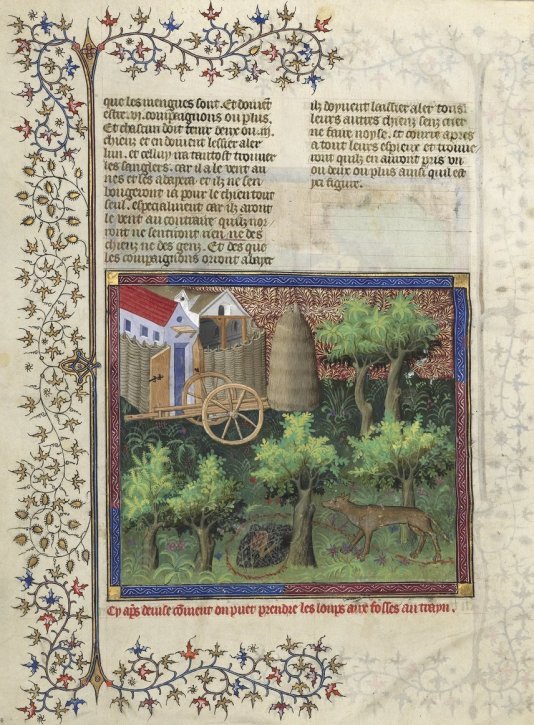 que les mengues sont. Et doivent
estre .vj. compaignons ou plus.
Et chascun doit tenir deux ou .iij.
chiens et en doivent lessier aler
l'un. et celluy ira tantost trouver
les sangliers. car il a le vent au
nes et les abaiera et ilz ne sen
bougeront ia pour le chien tout
seul. especialment car ilz aront
le vent au contraire quilz nor
ront ne sentiront rien ne des
chiens ne des gens. Et des que
les compaignons orront abaier
ilz doyvent laissier aler tous
leurs autres chiens sens crier
ne faire noyse. et courre apres
a tout leurs espieux et trouve
ront quilz en auront pris un
ou deux ou plus ainsi quil est
yci figure.
Cy aps devise coment on puet prendre les loups aux fosses au trayn.